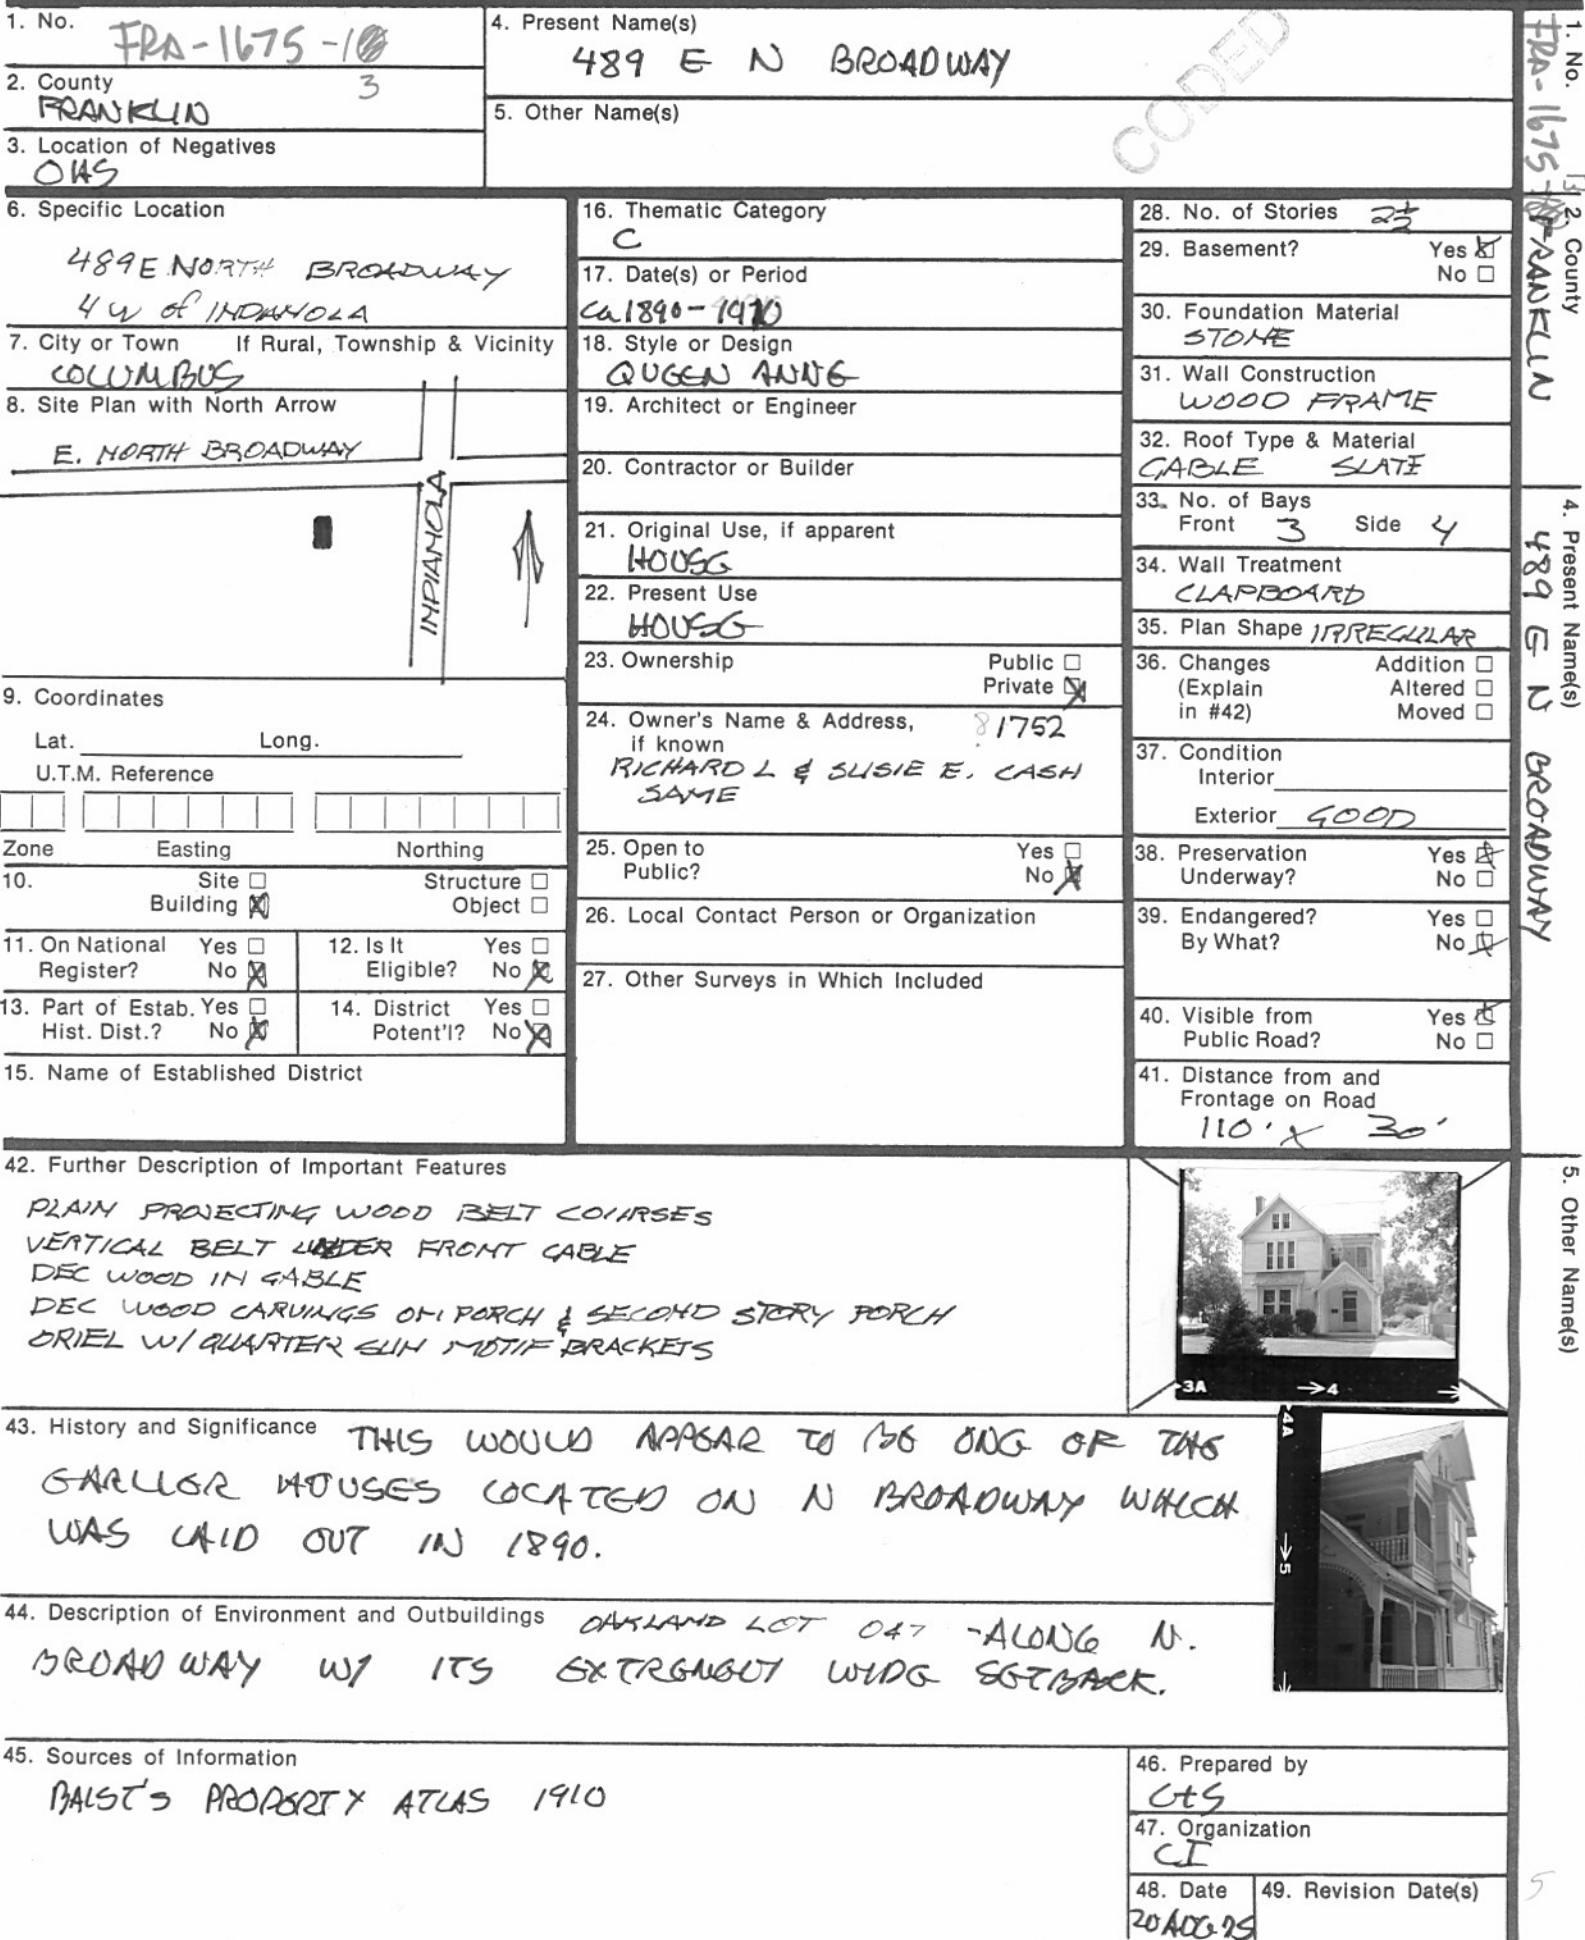 1. No.
FRA-1675-1
3
2. County
FRANKLIN
3. Location of Negatives
OHS
4. Present Name(s)
489 E N BROADWAY
5. Other Name(s)
CODED
6. Specific Location
489 E NORTH BROADWAY
4 W of INDANOLA
7. City or Town If Rural, Township & Vicinity
COLUMBUS
8. Site Plan with North Arrow
E. NORTH BROADWAY
INDIANOLA
9. Coordinates
Lat. Long.
U.T.M. Reference
Zone Easting Northing
10. Site ☐ Structure ☐
Building ☒ Object ☐
11. On National Yes ☐
Register? No ☒
12. Is It Yes ☐
Eligible? No ☒
13. Part of Estab. Yes ☐
Hist. Dist.? No ☒
14. District Yes ☐
Potent'l? No ☒
15. Name of Established District
16. Thematic Category
C
17. Date(s) or Period
Ca 1890-1910
18. Style or Design
QUEEN ANNE
19. Architect or Engineer
20. Contractor or Builder
21. Original Use, if apparent
HOUSE
22. Present Use
HOUSE
23. Ownership Public ☐
Private ☒
24. Owner's Name & Address, 81752
if known
RICHARD L & SUSIE E. CASH
SAME
25. Open to Yes ☐
Public? No ☒
26. Local Contact Person or Organization
27. Other Surveys in Which Included
28. No. of Stories 2½
29. Basement? Yes ☒
No ☐
30. Foundation Material
STONE
31. Wall Construction
WOOD FRAME
32. Roof Type & Material
GABLE SLATE
33. No. of Bays
Front 3 Side 4
34. Wall Treatment
CLAPBOARD
35. Plan Shape IRREGULAR
36. Changes Addition ☐
(Explain Altered ☐
in #42) Moved ☐
37. Condition
Interior
Exterior GOOD
38. Preservation Yes ☒
Underway? No ☐
39. Endangered? Yes ☐
By What? No ☒
40. Visible from Yes ☒
Public Road? No ☐
41. Distance from and
Frontage on Road
110' x 30'
42. Further Description of Important Features
PLAIN PROJECTING WOOD BELT COURSES
VERTICAL BELT UNDER FRONT GABLE
DEC WOOD IN GABLE
DEC WOOD CARVINGS ON PORCH & SECOND STORY PORCH
ORIEL W/ QUARTER SUN MOTIF BRACKETS
3A →4 →
43. History and Significance THIS WOULD APPEAR TO BE ONE OF THE
EARLIER HOUSES LOCATED ON N BROADWAY WHICH
WAS LAID OUT IN 1890.
4A →5 →
44. Description of Environment and Outbuildings OAKLAND LOT 047 -ALONG N.
BROADWAY W/ ITS EXTREMELY WIDE SETBACK.
45. Sources of Information
BAIST'S PROPERTY ATLAS 1910
46. Prepared by
47. Organization
CI
48. Date
20 AUG
49. Revision Date(s)
5
1. No.
FRA-1675-
13
2. County
FRANKLIN
4. Present Name(s)
489 E N BROADWAY
5. Other Name(s)